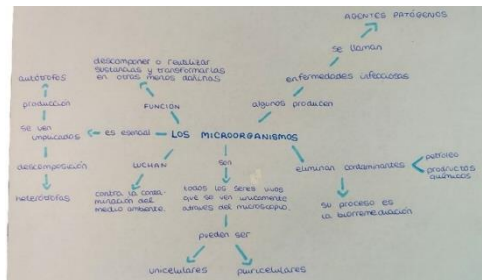 AGENTES PATÓGENOS
se llaman
enfermedades infecciosas
algunos producen
descomponer o reutilizar
sustancias y transformarlas
en otras menos dañinas
FUNCIÓN
autótrofos
producción
se ven
implicados
es esencial
LOS MICROORGANISMOS
descomposición
heterótrofos
LUCHAN
contra la conta-
minación del
medio ambiente.
son
todos los seres vivos
que se ven únicamente
através del microscopio.
pueden ser
unicelulares
pluricelulares
eliminan contaminantes
petróleo
productos
químicos
su proceso es
la biorremediación